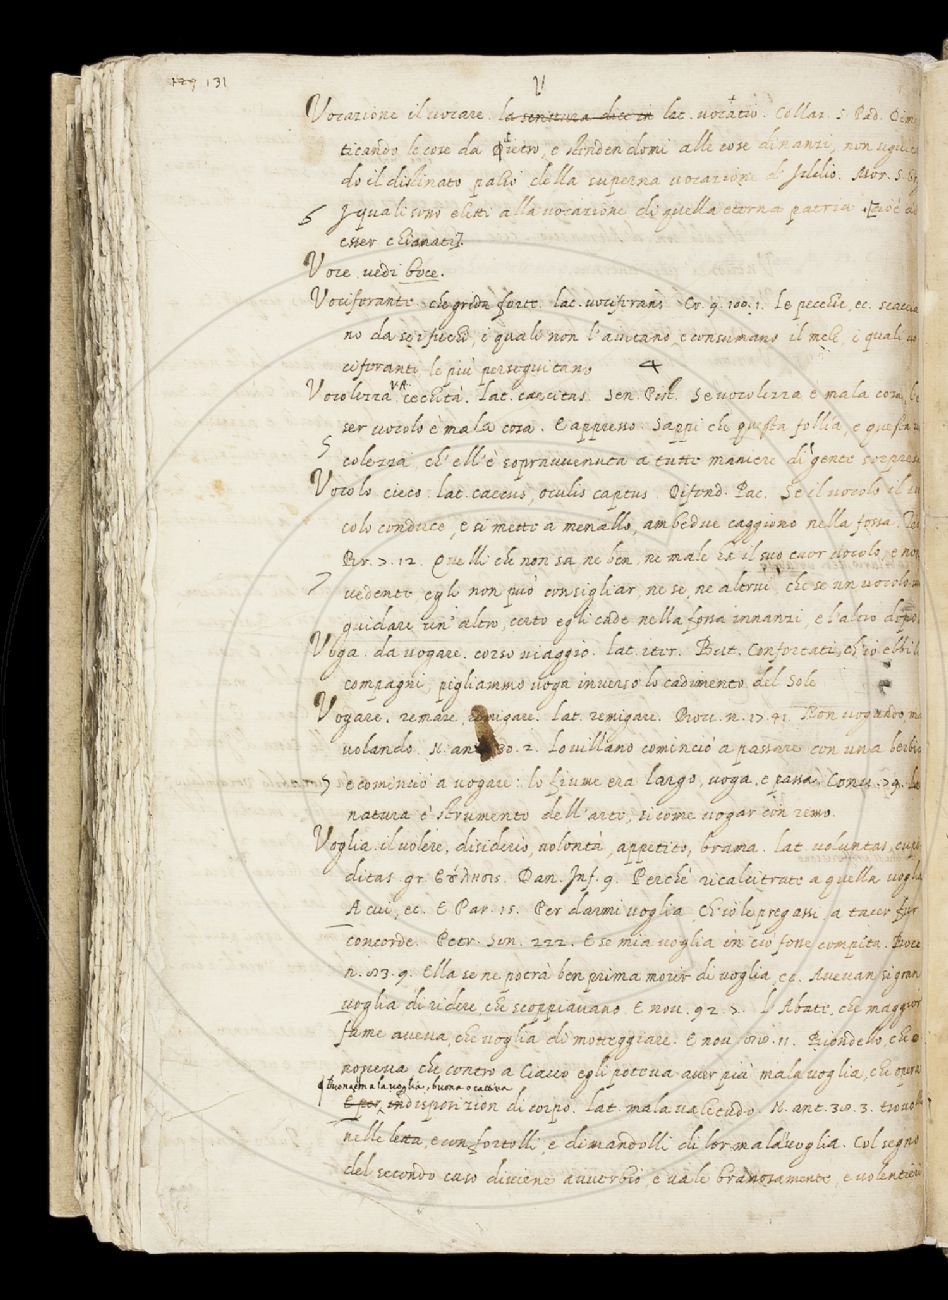 129 131
V
Vocazione il vocare. la scrittura dice in lat. vocatio. Collaz. S. Pad. Dime
ticando le cose da dietro, e stendendomi alle cose dinanzi, non
do il distinato palio della superna vocazione d' Iddio. Mor. S.
5 I quali sono eletti alla vocazione di quella eterna patria. [cioè ad
esser chiamati].
Voce vedi boce.
Vociferante che grida forte. lat. vociferans Cr. 9. 100. 1. le pecchie, ec. scaccia
no da se i fuchi, i quali non l' aiutano e consumano il mele, i quali vo
ciferanti le più perseguitano 4
Vocolezza cechità. lat. caecitas. Sen. Pist. Se vocolezza è mala cosa, l'e
ser vocolo è mala cosa. E appresso. Sappi che questa follia, e questa v
5 colezza, ch' ell' è sopravvenuta a tutte maniere di gente sorprese
Vocolo cieco. lat. caecus, oculis captus. Difend. Pac. Se il vocolo il vo
colo conduce, e si mette a menallo, ambedue caggiono nella fossa. Tes
Br. 7. 12. Quelli che non sa ne ben, ne male ha il suo cuor vocolo, e non
7 vedente egli non può consigliar, ne se, ne altrui che se un vocolo
guidare un' altro, certo egli cade nella fossa innanzi, e l' altro dopo.
Voga. da vogare. corso viaggio. lat. iter. But. Confortati, ch' io ebbi li
compagni, pigliammo voga inverso lo cadimento del Sole
Vogare. remare, remigare. lat. remigare. Bocc. n. 17. 41. Non vogando, ma
volando. N. ant. 30. 2. Lo villano cominciò a passare con una berbice
7 e cominciò a vogare: lo fiume era largo, voga, e passa. Com. 29. La
natura è strumento dell' arte, si come vogar con remo.
Voglia. il volere, disiderio, volontà, appetito, brama. lat. voluntas, cupi
ditas gr. Dan. Inf. 9. Perchè ricalcitrate a quella voglia
A cui, ec. E Par. 15. Per darmi voglia, ch' io le pregassi, a tacer fur
concorde. Petr. Son. 222. E se mia voglia in ciò fosse compita. Bocc
n. 83. 9. Ella se ne potrà ben prima morir di voglia, ec. Avevan sì gran
voglia di ridere che scoppiavano. E nov. 92. 7. l' Abate, che maggior
fame aveva, che voglia di motteggiare. E nov. 88. 11. Biondello, che c
nosceva che contro a Ciacco egli poteva aver più mala voglia, che opera
buona e mala voglia, buona o cattiva
E per indisposizion di corpo. lat. mala valetudo. N. ant. 38. 3. trovo
nelle letta, e confortolli, e dimandolli di lor mala voglia. Col segno
del secondo caso diviene avverbio, e vale bramosamente, e volentieri